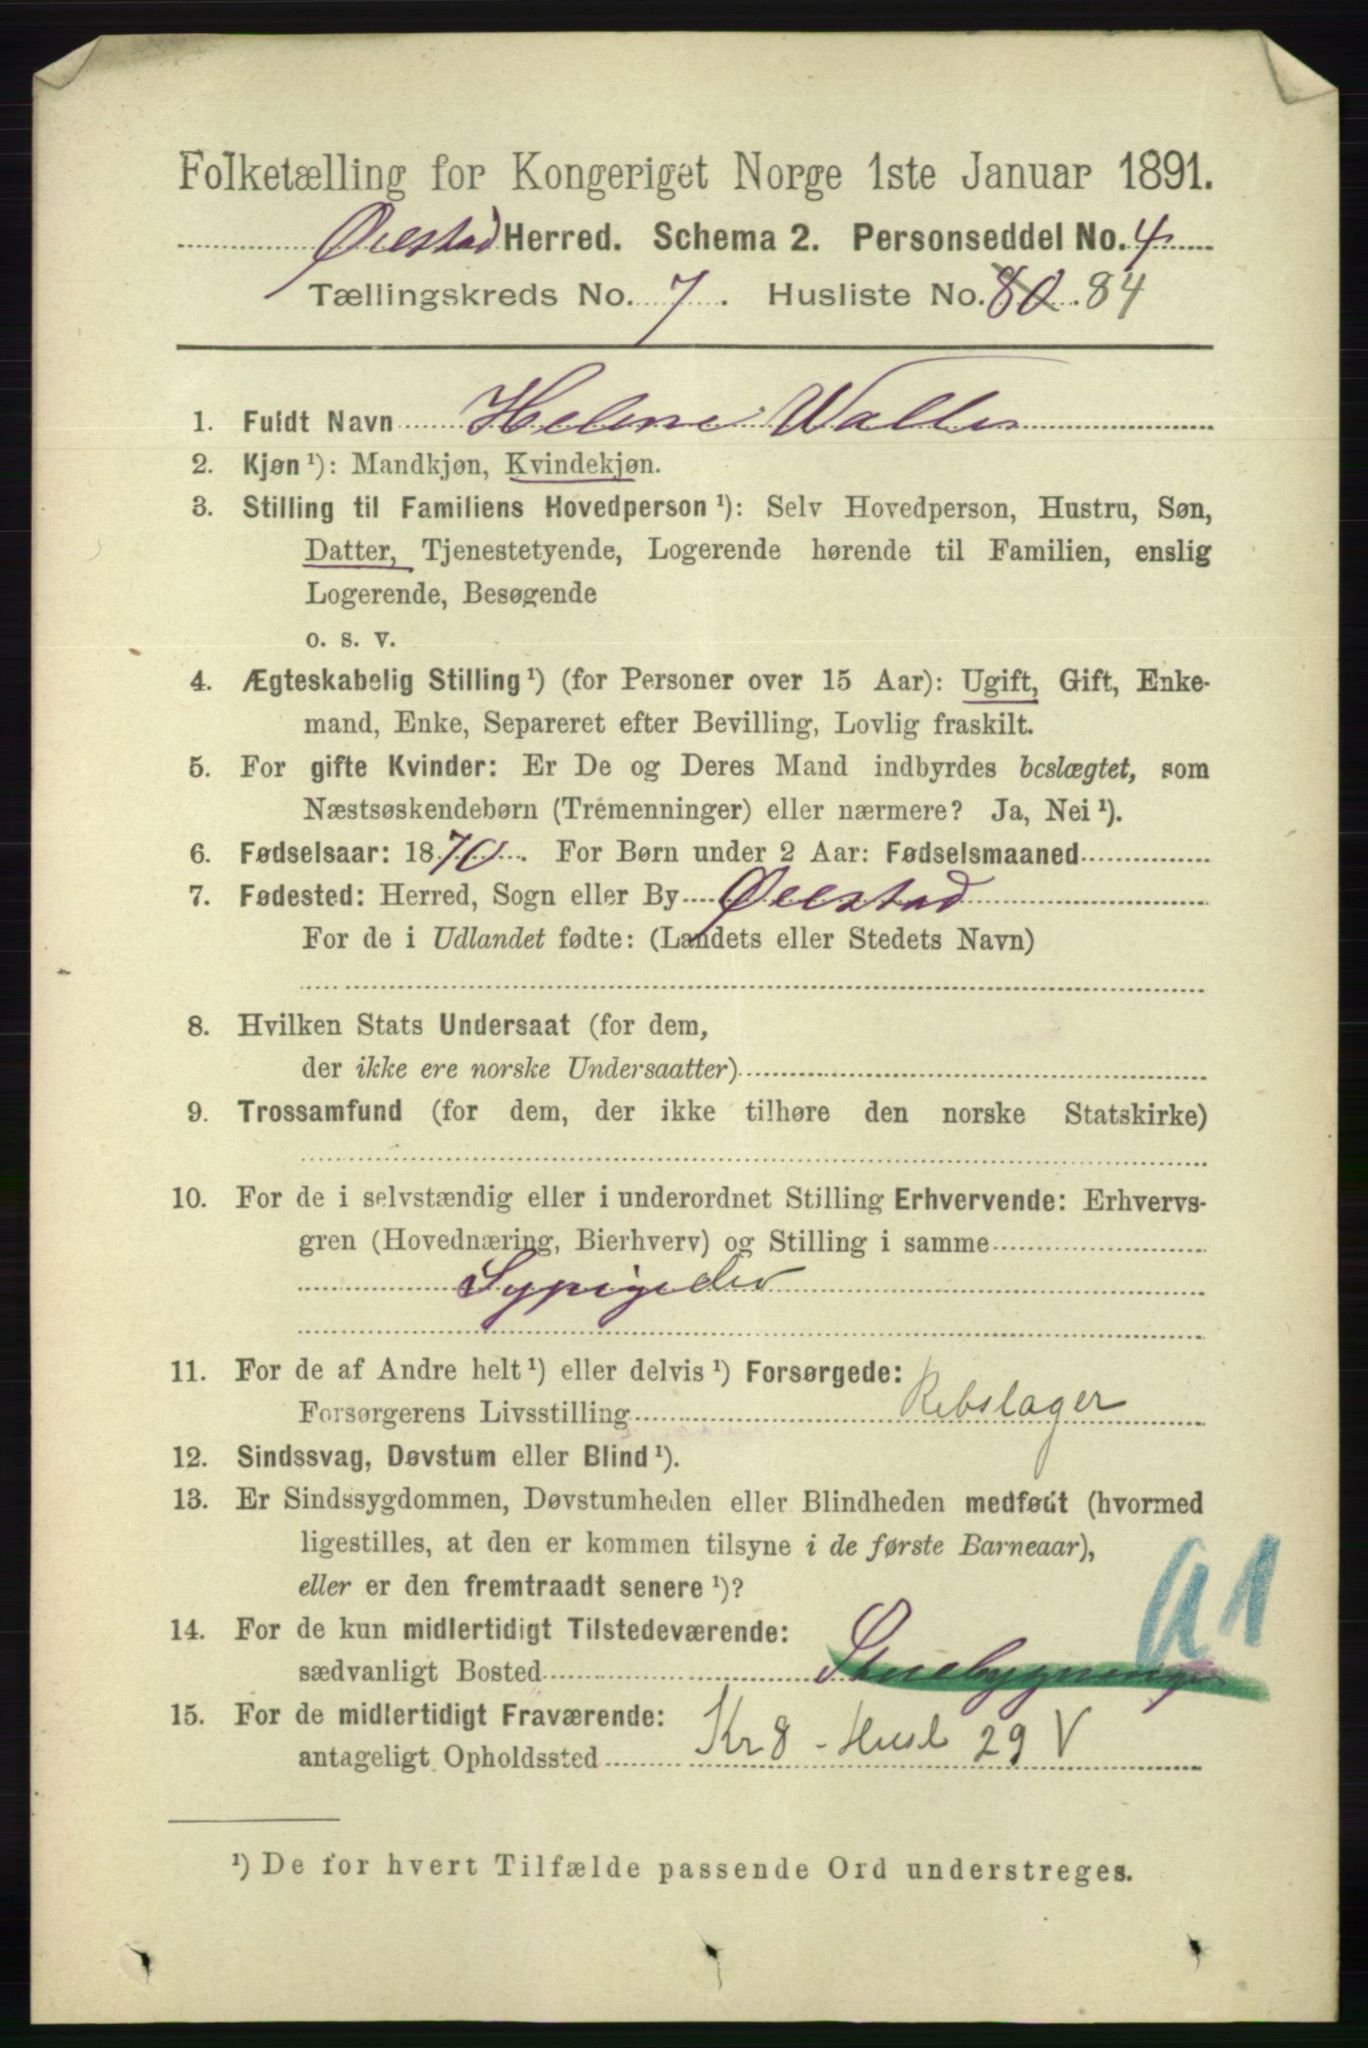 Folketælling for Kongeriget Norge 1ste Januar 1891.
Øiestad Herred. Schema 2. Personseddel No. 4
Tællingskreds No. 7. Husliste No. 80. 84
1. Fuldt Navn Helene Walle
2. Kjøn ¹): Mandkjøn, Kvindekjøn.
3. Stilling til Familiens Hovedperson ¹): Selv Hovedperson, Hustru, Søn,
Datter, Tjenestetyende, Logerende hørende til Familien, enslig
Logerende, Besøgende
o. s. v.
4. Ægteskabelig Stilling ¹) (for Personer over 15 Aar): Ugift, Gift, Enke-
mand, Enke, Separeret efter Bevilling, Lovlig fraskilt.
5. For gifte Kvinder: Er De og Deres Mand indbyrdes beslægtet, som
Næstsøskendebørn (Tremenninger) eller nærmere? Ja, Nei ¹).
6. Fødselsaar: 1870. For Børn under 2 Aar: Fødselsmaaned
7. Fødested: Herred, Sogn eller By Øiestad
For de i Udlandet fødte: (Landets eller Stedets Navn)
8. Hvilken Stats Undersaat (for dem,
der ikke ere norske Undersaatter)
9. Trossamfund (for dem, der ikke tilhøre den norske Statskirke)
10. For de i selvstændig eller i underordnet Stilling Erhvervende: Erhvervs-
gren (Hovednæring, Bierhverv) og Stilling i samme
Sypige
11. For de af Andre helt ¹) eller delvis ¹) Forsørgede:
Forsørgerens Livsstilling Rebslager
12. Sindssvag, Døvstum eller Blind ¹).
13. Er Sindssygdommen, Døvstumheden eller Blindheden medfødt (hvormed
ligestilles, at den er kommen tilsyne i de første Barneaar),
eller er den fremtraadt senere ¹)?
a1
14. For de kun midlertidigt Tilstedeværende:
sædvanligt Bosted Stuebygningen
15. For de midlertidigt Fraværende:
antageligt Opholdssted Kr 8 - Husl 29 V
¹) De for hvert Tilfælde passende Ord understreges.